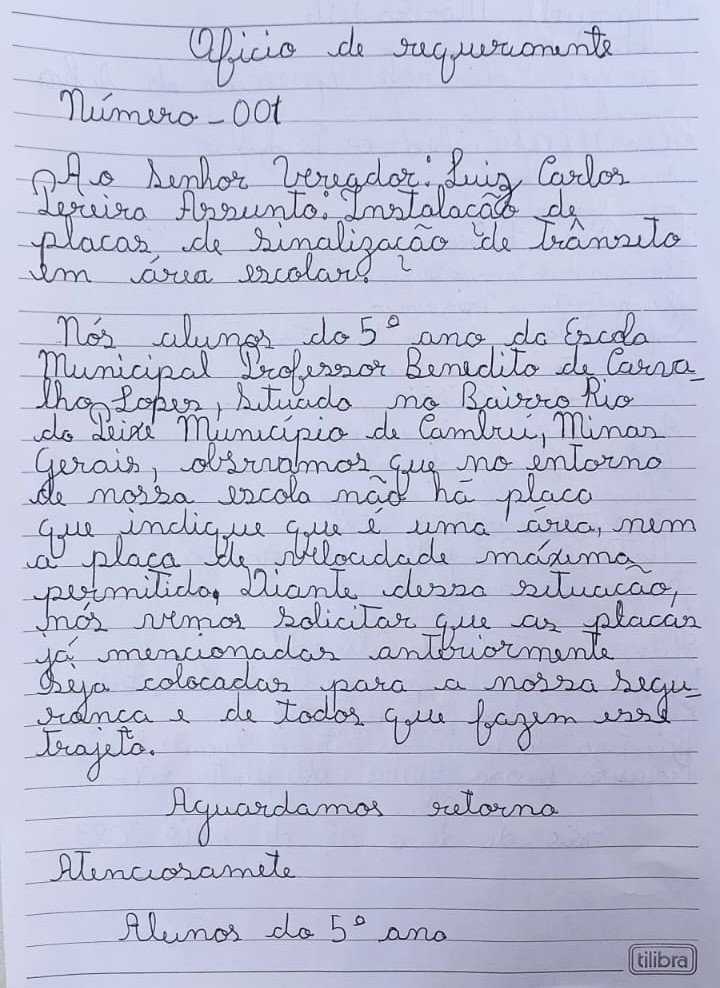 Oficio de requerionente
Número - 001
Ao Senhor Veregdor: Luiz Carlos
Pereira Assunto: Instalacão de
placas de sinalização de trânsito
em área escolar.
Nós alunos do 5º ano da Escola
Municipal Professor Benedito de Carva_
lho Lopes, situada no Bairro Rio
do Peixe Município de Cambuí, Minas
Gerais, obsrvamos que no entorno
de nossa escola não há placa
que indique que é uma área, nem
a placa de velocidade máxima
permitida. Diante dessa situacão,
nós vemos solicitar que as placas
já mencionadas anteriormente
seja colocadas para a nossa segu_
ranca e de todos que fazem esse
trajeto.
Aguardamos retorno
Atenciosamete
Alunos do 5º ano
tilibra